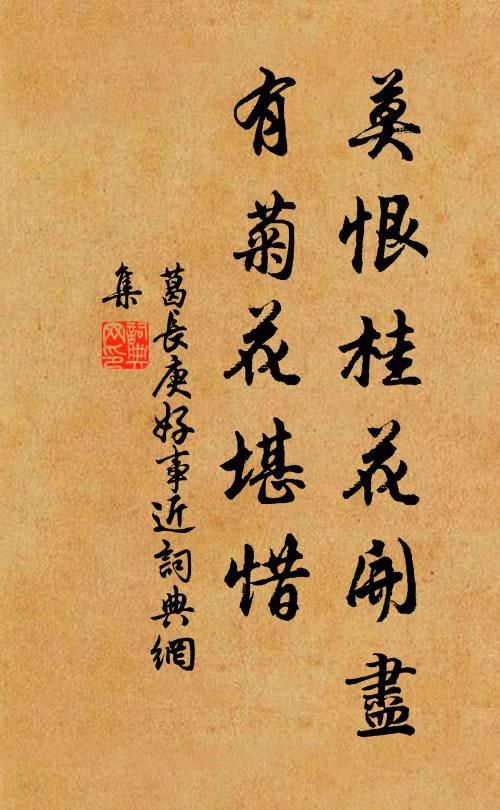 莫恨桂花開盡
有菊花堪惜
葛長庚好事近詞典網
集
詞典网印